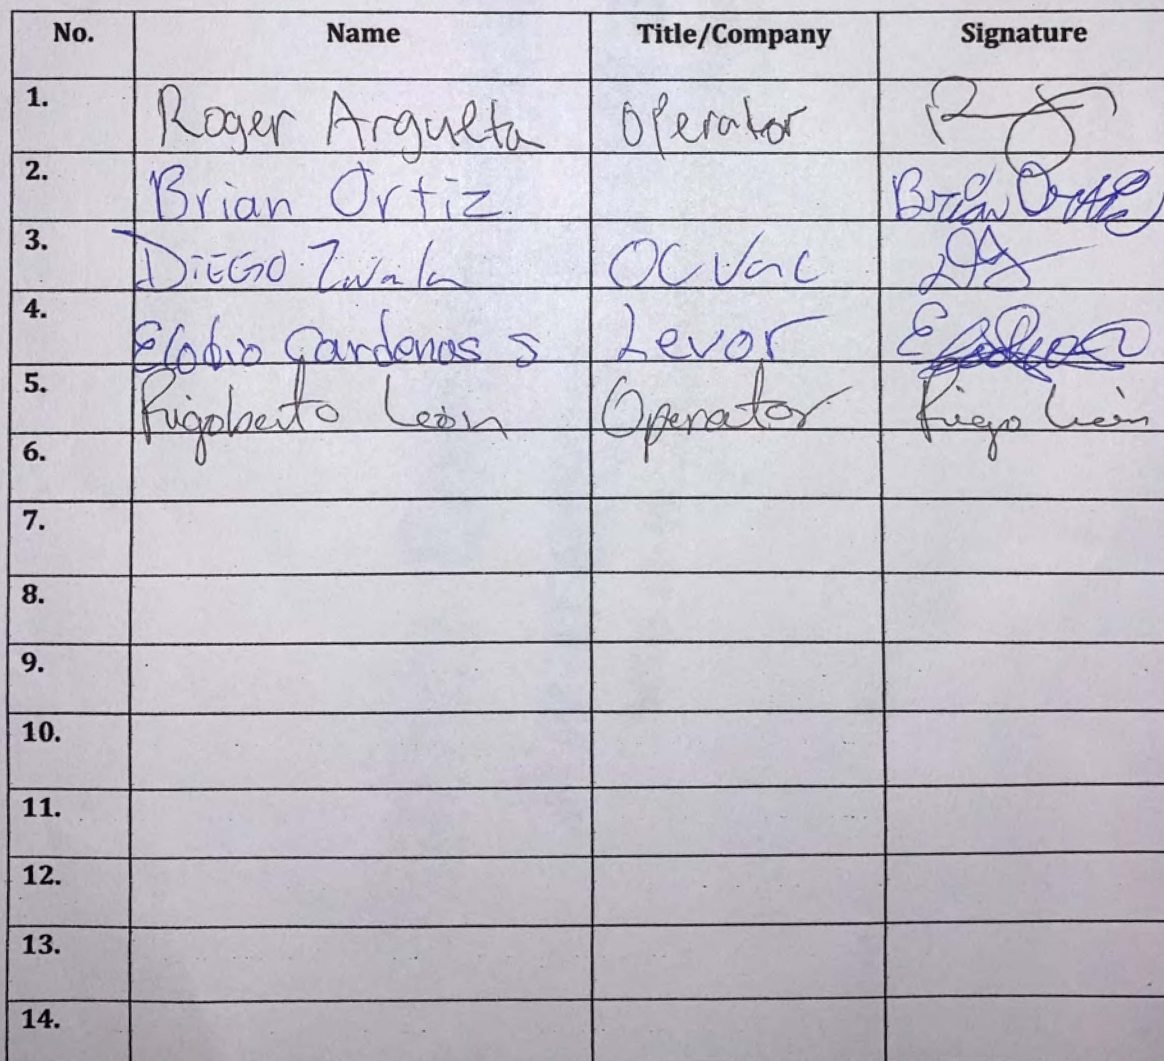 No. Name Title/Company Signature
1. Roger Argueta Operator
2. Brian Ortiz Brian Ortiz
3. DIEGO OC Vac
4. Elobio Cardenas S Levor
5. Rigoberto León Operator Rigo León
6.
7.
8.
9.
10.
11.
12.
13.
14.